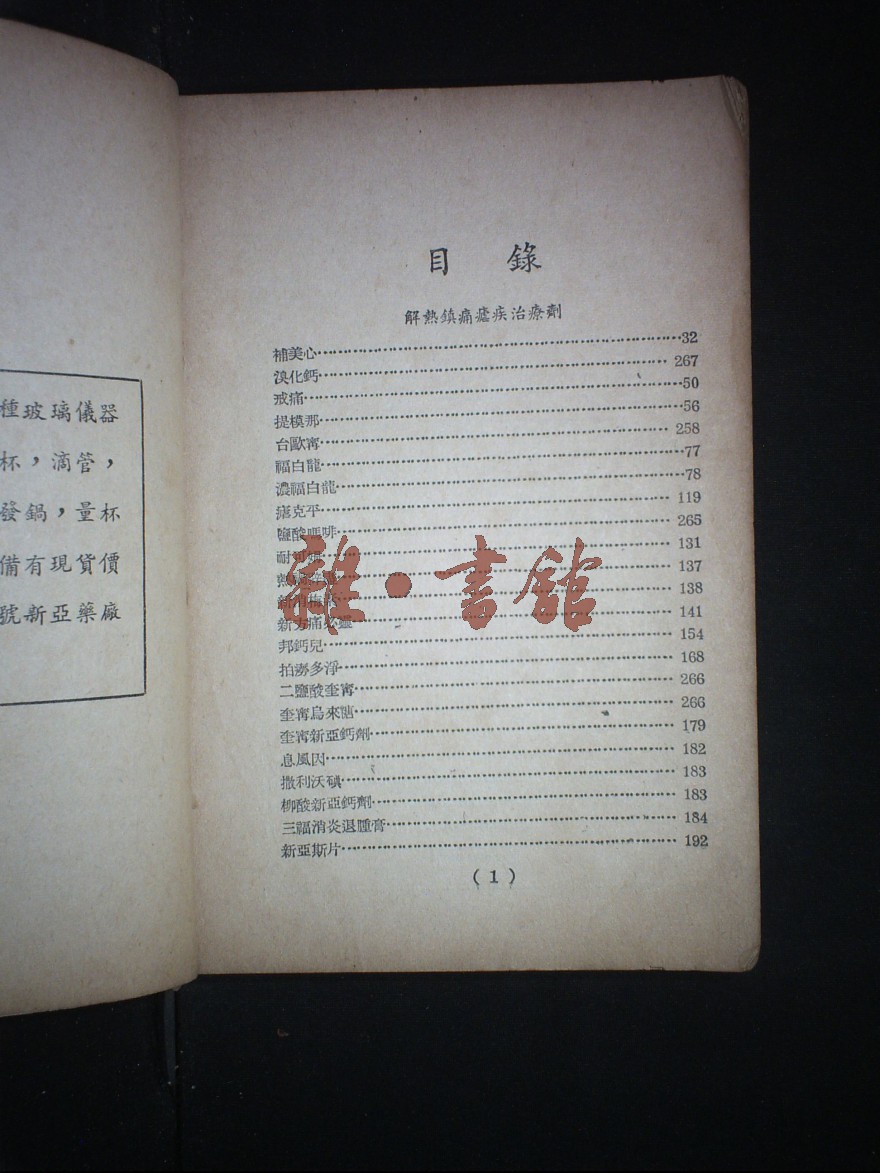 種玻璃儀器
杯，滴管，
發鍋，量杯
備有現貨價
號新亞藥廠
目 錄
解熱鎮痛瘧疾治療劑
補美心 32
溴化鈣 267
戒痛 50
提模那 56
台歐甯 258
福白龍 77
濃福白龍 78
瘧克平 119
鹽酸嗎啡 265
耐 131
137
新 138
新方痛必靈 141
邦鈣兒 154
拍瘳多淨 168
二鹽酸奎甯 266
奎甯烏來糖 266
奎甯新亞鈣劑 179
息風因 182
撒利沃碘 183
柳酸新亞鈣劑 183
三福消炎退腫膏 184
新亞斯片 192
(1)
雜·書館